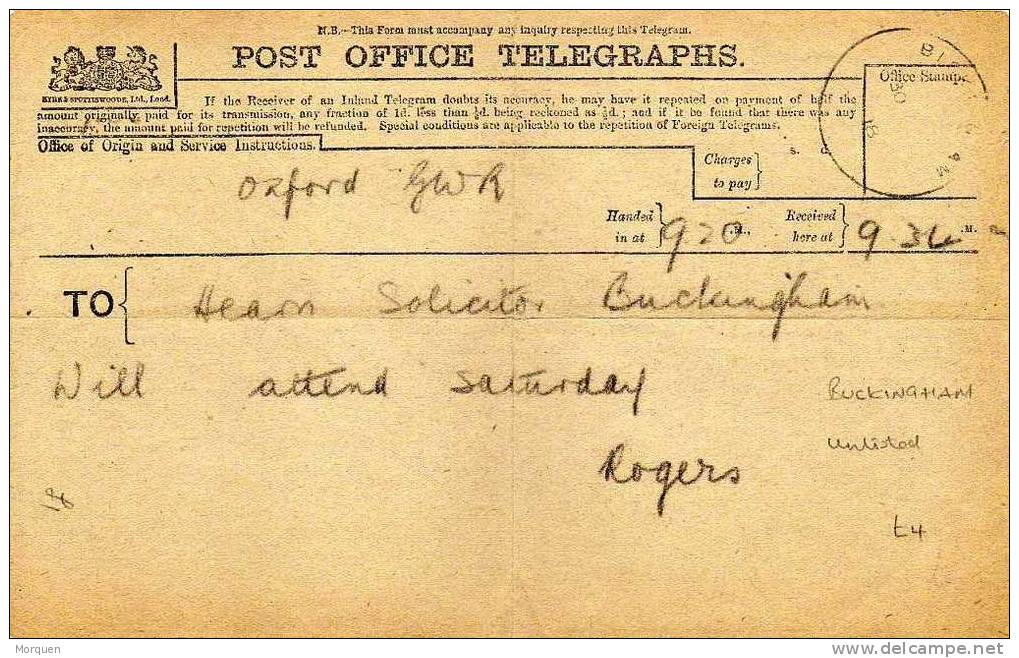 N.B.—This Form must accompany any inquiry respecting this Telegram.
POST OFFICE TELEGRAPHS.
EYRE & SPOTTISWOODE, Ltd., Lond.
If the Receiver of an Inland Telegram doubts its accuracy, he may have it repeated on payment of half the
amount originally paid for its transmission, any fraction of 1d. less than ½d. being reckoned as ½d.; and if it be found that there was any
inaccuracy, the amount paid for repetition will be refunded. Special conditions are applicable to the repetition of Foreign Telegrams.
Office Stamp.
Office of Origin and Service Instructions.
Charges to pay } s. d.
Oxford GWR
Handed in at } 9 20 .M., Received here at } 9 34 .M.
TO { Hearn Solicitor Buckingham
Will attend Saturday
BUCKINGHAM
unlisted
Rogers
£4
Morquen
delcampe.net